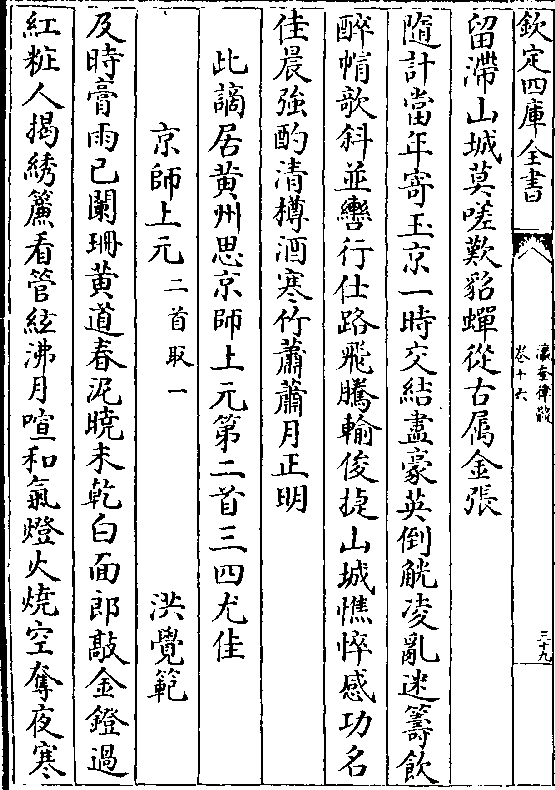 欽定四庫全書
瀛奎律髓
卷十六
三十九
留滯山城莫嗟歎貂蟬從古属金張
隨計當年寄玉京一時交結盡豪英倒觥凌亂迷籌飲
醉帽歌斜並轡行仕路飛騰輸俊捷山城憔悴感功名
佳晨強酌清樽酒寒竹蕭蕭月正明
此謫居黃州思京師上元第二首三四尤佳
京師上元二首取一 洪覺範
及時膏雨已闌珊黃道春泥曉未乾白面郎敲金鐙過
紅粧人揭綉簾看管絃沸月喧和氣燈火燒空奪夜寒